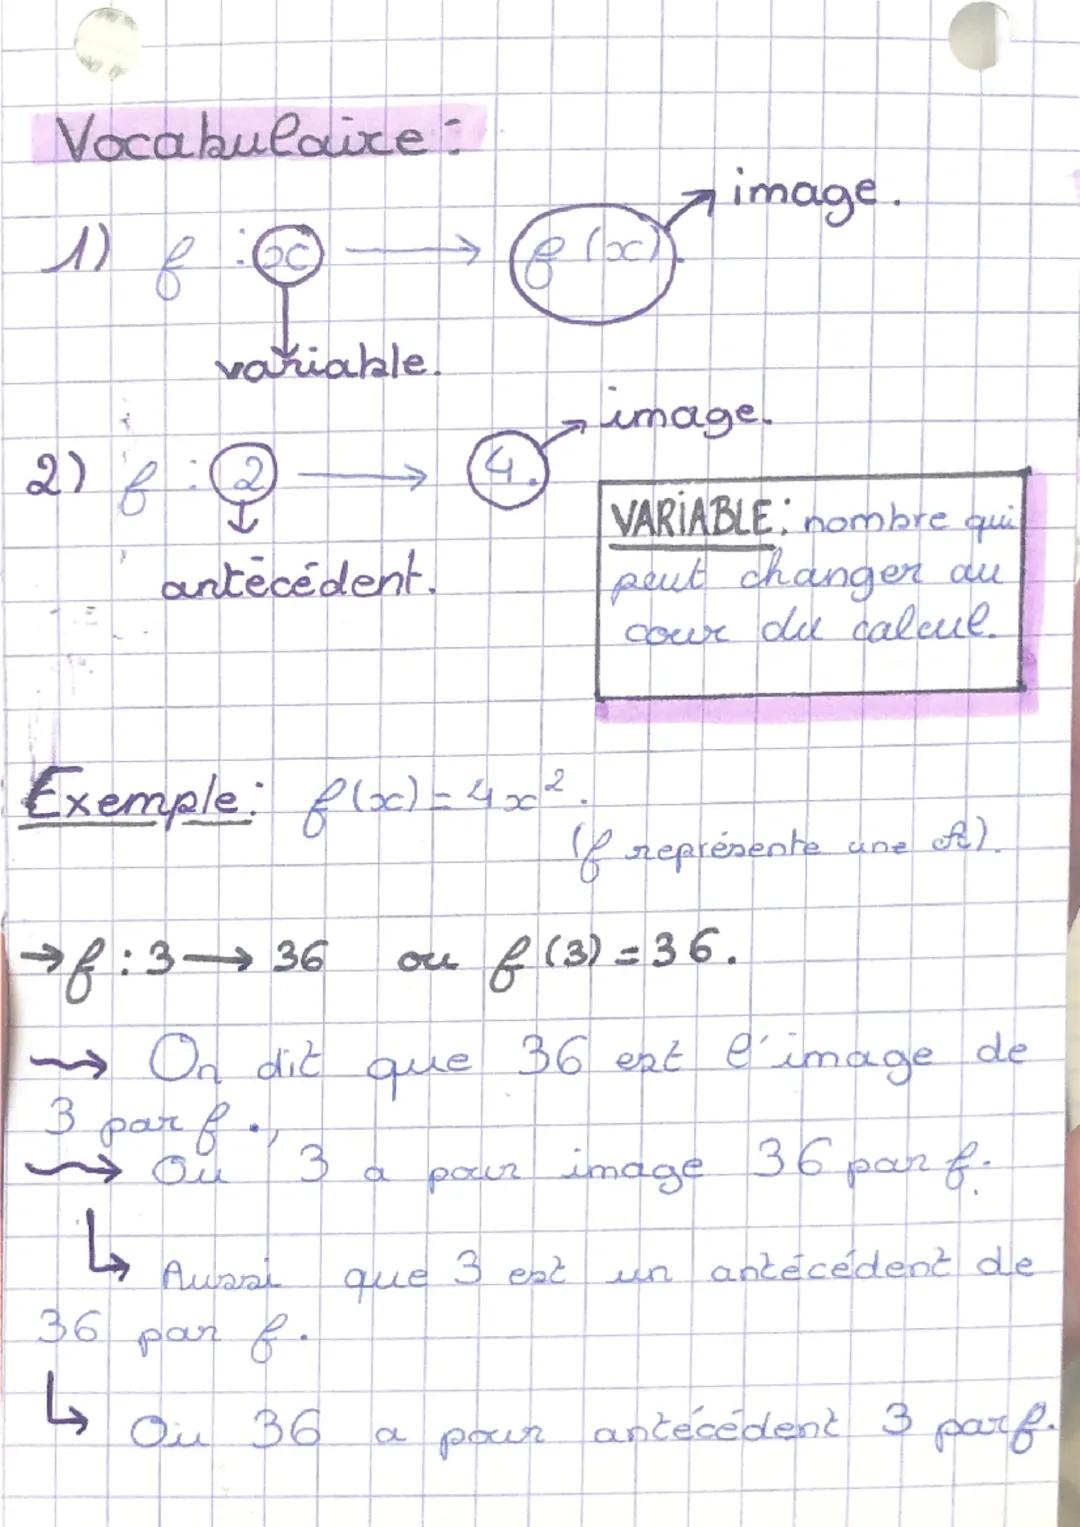 Vocabulaire :
image.
1) f : x → f(x).
variable.
image.
2) f : 2 → 4.
antécédent.
VARIABLE : nombre qui
peut changer au
cour du calcul.
Exemple : f(x) = 4x².
(f représente une A).
→ f : 3 → 36 ou f(3) = 36.
→ On dit que 36 est l'image de
3 par f.,
→ Ou 3 a pour image 36 par f.
↳ Aussi que 3 est un antécédent de
36 par f.
↳ Ou 36 a pour antécédent 3 par f.